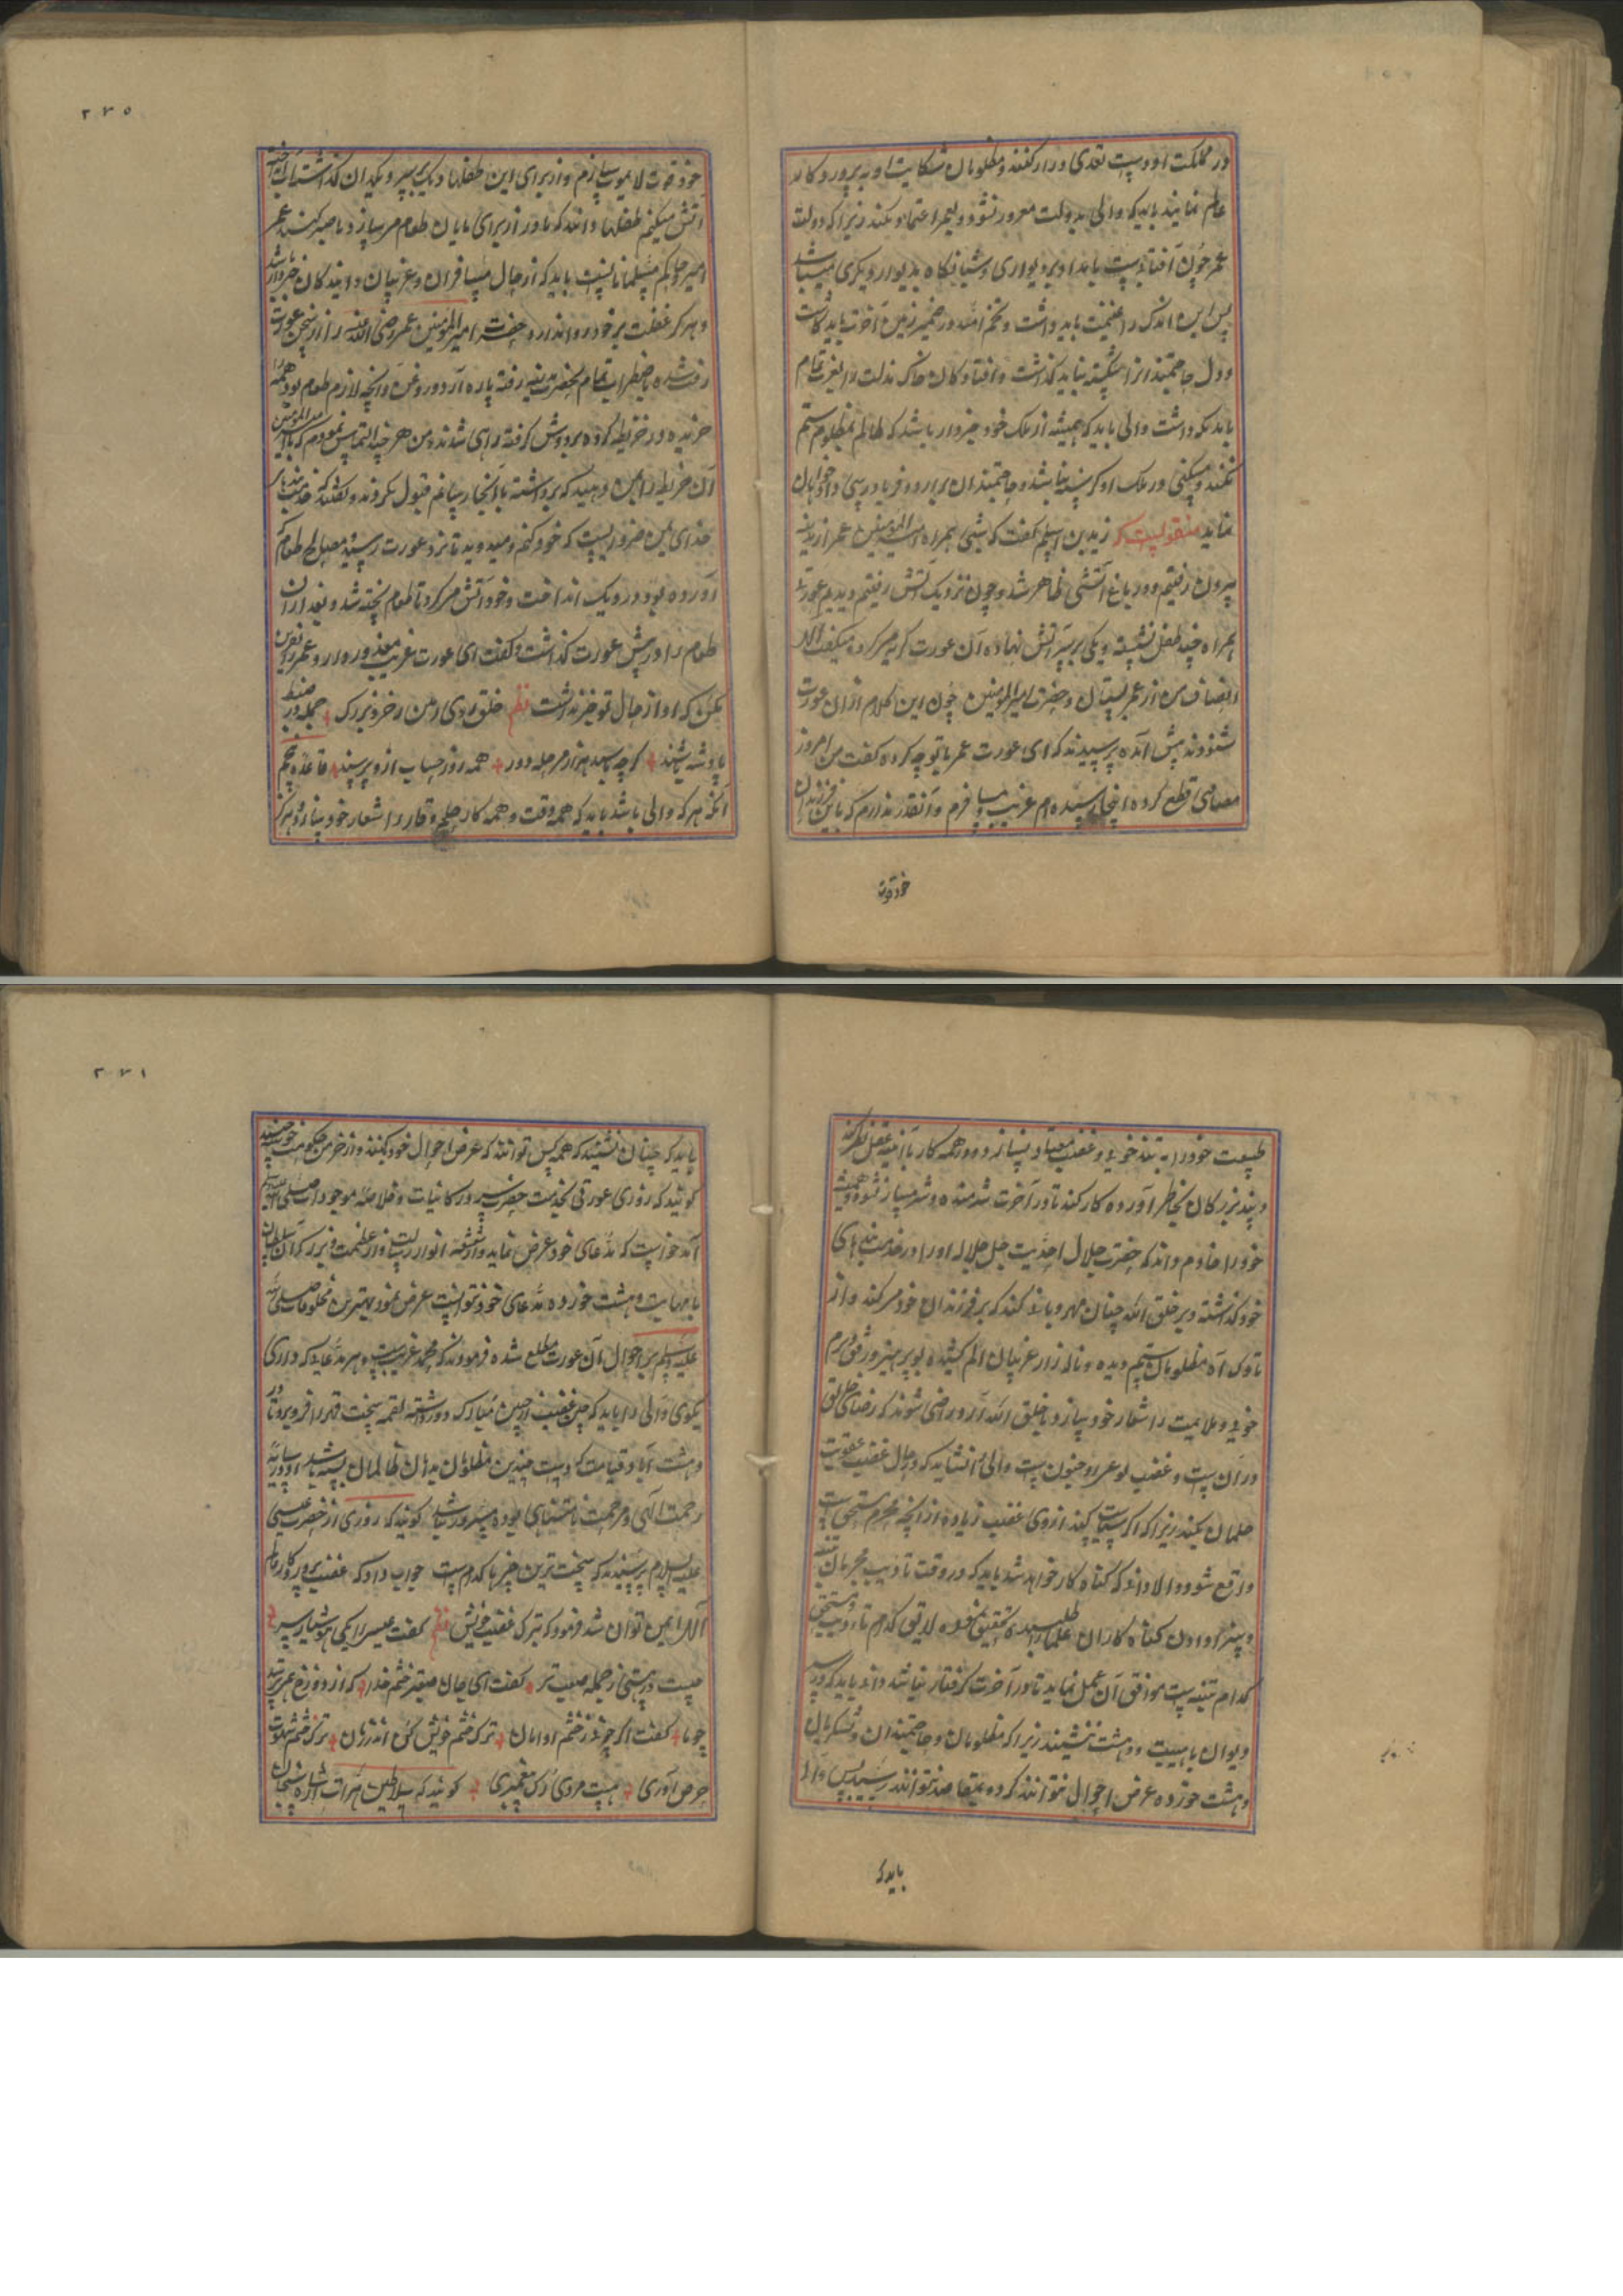 در مملکت او دست تعدی دراز کنند و مظلومان شکایت او به پروردکار
عالم نمایند باید که والی بدولت مغرور نشود و بعمر اعتماد نکند زیرا که دولت
عمر چون آفتابست بامداد بر دیواری و شبانکاه بدیوار دیکری میباشد
پس این اندک را غنیمت باید داشت و تخم در زمین آخرت باید کاشت
و دل حاجتمندانرا شکسته نباید کذاشت و افتادکان خاک مذلت را بعزت تمام
باید نکه داشت والی باید که همیشه از ملک خود خبردار باشد که ظالم بمظلوم ستم
نکند و مسکینی در ملک او کرسنه نباشد و حاجتمندان برارد و فریادرسی دادخواهان
نماید منقولست که زید بن اسلم کفت که شبی همراه امیرالمومنین عمر از مدینه
بیرون رفتیم و در باغ آتشی ظاهر شد و چون نزدیک آتش رفتیم دیدیم عورتی
همراه چند طفل نشسته و دیکی بر سر آتش نهاده آن عورت کریه میکرد و میکفت الهی
انصاف من از عمر بستان و حضرت امیرالمومنین چون این کلام از آن عورت
شنودند پیش آمده پرسیدند که ای عورت عمر با تو چه کرده کفت من امروز
مسافتی قطع کرده اینجا رسیده‌ام غریب و مسافرم و آنقدر ندارم که با این فرزندان
خود قوت
۲۷۵
خود قوت لایموت سازم و از برای این طفلها دیک بر سر دیکدان کذاشته‌ام
آتش میکنم طفلها دانند که مادر از برای مایان طعام میسازد تا صبر کنند عمر
امیر و حاکم مسلمانانست باید که از حال مسافران و غریبان و ماندکان خبردار باشد
و هرکز غفلت بر خود روا ندارد حضرت امیرالمومنین عمر رضی الله عنه را از سخن عورت
رقت شده باضطراب تمام بمدینه رفته پاره آرد و روغن و آنچه لازم طعام بود همه
خریده در خریطه کرده بر دوش کرفته راهی شدند و من هر چند التماس نمودم که یا امیرالمومنین
آن خریطه را بمن دهید که برداشته تا آنجا رسانم قبول نکردند و کفتند که
خدای بمن ضرور است که خود کنم و میدوید تا نزد عورت رسید مصالح طعام که
آورده بود در دیک انداخت و خود آتش میکرد تا طعام پخته شد و بعد از آن
طعام را در پیش عورت کذاشت و کفت ای عورت غریب معذور دار و عمر را نفرین
مکن که او از حال تو خبر نداشت نظم خلق روی زمین ز خرد و بزرک جمله در ضبط
پادشه باشند کرچه باشد هزار مرحله دور همه روز حساب ازو پرسند قاعده پنجم
آنکه هر که والی باشد باید که همه وقت و همه کار حلم و وقار را شعار خود نماید و هرکز
طبیعت خود را به تندخویی و غضب معتاد نسازد و در همه کار بآئینه عقل نظر کند
و پند بزرکان بخاطر آورده کار کند تا در آخرت شرمنده و شرمسار نشود و همیشه
خود را خادم داند که حضرت جلال احدیت جل جلاله او را در خدمت بندهای
خود کذاشته و بر خلق الله چنان مهربانی کند که بر فرزندان خود میکند و از
ناوک آه مظلومان ستم دیده و ناله زار غریبان الم کشیده بپرهیزد و رفق و نرم
خویی و ملایمت را شعار خود سازد تا خلق الله ازو راضی شوند که رضای خالق
در آنست و غضب نوعی از جنونست والی را نشاید که در حال غضب عقوبت
بکند زیرا که اکر سیاست کند از روی غضب زیاده از آنچه مجرم مستحق است
واقع شود والا داند که کناه کار خواهد شد باید که در وقت تادیب مجرمان
و سزا دادن کناه کاران علما را طلبیده تحقیق نموده لایق کدام تادیب و مستحق
کدام تنبیه است موافق آن عمل نماید تا در آخرت کرفتار نباشد و باید که بر سر
دیوان با هیبت و دهشت ننشیند زیرا که مظلومان و حاجتمندان و
دهشت خورده عرض احوال نتوانند کرد و بمقاصد نتوانند رسید پس والی
باید که
۲۷۶
باید که چنان نشیند که همه کس توانند که عرض احوال خود بکنند و از خرمن حکومت خوشه چینند
کویند که روزی عورتی بخدمت حضرت سرور کائنات و خلاصه موجودات صلی الله علیه وسلم
آمد خواست که مدعای خود عرض نماید و از شعشعه انوار رسالت و از عظمت و بزرکی آن سلطان
بانهایت دهشت خورده مدعای خود نتوانست عرض نمود بهترین مخلوقات صلی الله
علیه وسلم بر احوال آن عورت مطلع شده فرمودند که محمد غریبست هر مدعایی که داری
بکوی والی را باید که چین غضب از جبین مبارک دور داشته لقمه سخت قهر را فرو برد تا در
دهشت آباد قیامت که دست چندین مظلومان بدامان ظالمان بسته باشد او در سایه
رحمت الهی و مرحمت نامتناهی بوده مسرور باشد کویند که روزی از حضرت عیسی
علیه السلام پرسیدند که سخت ترین چیزها کدامست جواب داد که غضب پروردکار عالم
از آن ایمن توان شد فرمود که بترک غضب خویش نظم کفت عیسی را یکی هوشیار سر
چیست در هستی ز جمله صعب تر کفت ای جان صعبتر خشم خدا که از او دوزخ همی لرزد
چو ما کفت از خشم خدا چبود امان ترک خشم خویش کن اندر زمان ترک خشم شهوت
حرص آوری هست مردی و رک پیغمبری کویند که سلاطین هرات